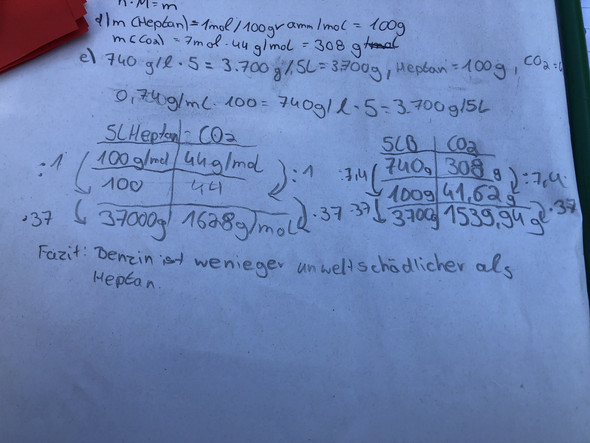 n · M = m
d) m (Heptan) = 1mol / 100gramm/mol = 100g
m (CO2) = 7mol · 44 g/mol = 308 g
e) 740 g/l · 5 = 3.700 g/5L = 3700g, Heptan = 100g, CO2 =
0,74g/mL · 100 = 740g/l · 5 = 3.700 g/5L
5L Heptan CO2
:1 100 g/mol 44 g/mol :1
100 44
·37 37000g 1628g/mol ·37
5LB CO2
:7,4 740g 308 g :7,4
100g 41,62g
·37 3700g 1539,94 g ·37
Fazit: Benzin ist wenieger umweltschädlicher als
Heptan.